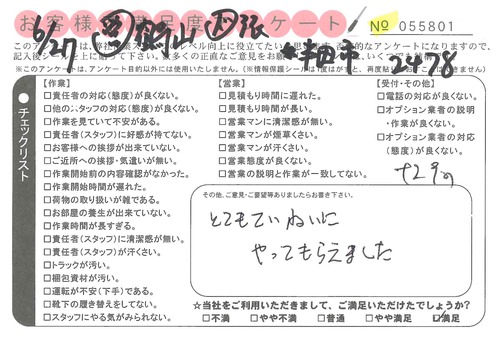 お客様満足度アンケート!
No 055801
6/27
※このアンケートは、アンケート目的以外には使用いたしません。
2478
チェックリスト
【作業】
□責任者の対応(態度)が良くない。
□他のスタッフの対応(態度)が良くない。
□作業を見ていて不安がある。
□責任者(スタッフ)に好感が持てない。
□お客様への挨拶が出来ていない。
□ご近所への挨拶・気遣いが無い。
□作業開始前の内容確認がなかった。
□作業開始時間が遅れた。
□荷物の取り扱いが雑である。
□お部屋の養生が出来ていない。
□作業時間が長すぎる。
□責任者(スタッフ)に清潔感が無い。
□責任者(スタッフ)が汗くさい。
□トラックが汚い。
□梱包資材が汚い。
□運転が不安(下手)である。
□靴下の履き替えをしてない。
□スタッフにやる気がみられない。
【営業】
□見積もり時間に遅れた。
□見積もり時間が長い。
□営業マンに清潔感が無い。
□営業マンが煙草くさい。
□営業マンが汗くさい。
□営業態度が良くない。
□営業の説明と作業が一致してない。
【受付・その他】
□電話の対応が良くない。
□オプション業者の説明
・作業が良くない。
□オプション業者の対応
(態度)が良くない。
その他、ご意見・ご要望等ありましたらお書き下さい。
とてもていねいに
やってもらえました
☆当社をご利用いただきまして、ご満足いただけたでしょうか?
□不満 □やや不満 □普通 □やや満足 ☑満足